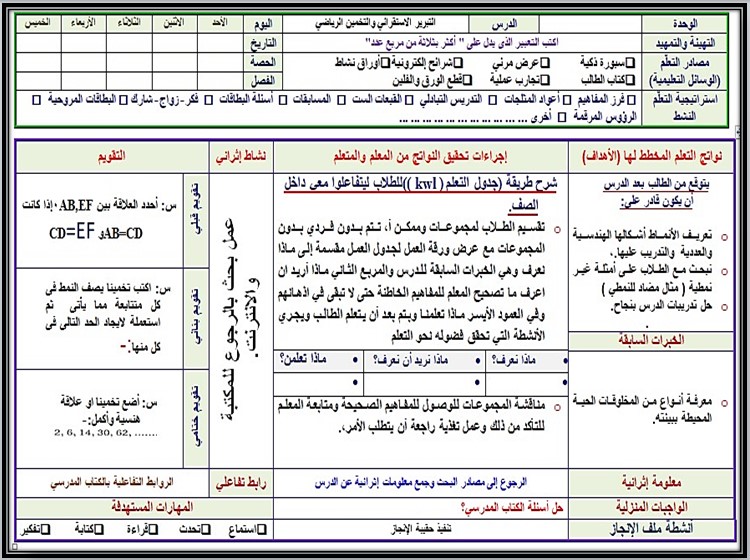 الوحدة
الدرس
التبرير الاستقرائي والتخمين الرياضي
اليوم
الأحد
الاثنين
الثلاثاء
الأربعاء
الخميس
التهيئة والتمهيد
اكتب التعبير الذى يدل على " أكثر بثلاثة من مربع عدد"
التاريخ
مصادر التعلم
(الوسائل التعليمية)
□سبورة ذكية □عرض مرئي □شرائح إلكترونية □أوراق نشاط
□كتاب الطالب □تجارب عملية □قطع الورق والفلين
الحصة
الفصل
استراتيجية التعلم
النشط
□ فرز المفاهيم □ أعواد المثلجات □ التدريس التبادلي □ القبعات الست □ المسابقات □ أسئلة البطاقات □ فكر-زواج-شارك □ البطاقات المروحية □
الرؤوس المرقمة □ أخرى ... ... ... ... ... ... ... ... ... ...
نواتج التعلم المخطط لها (الأهداف)
إجراءات تحقيق النواتج من المعلم والمتعلم
نشاط إثرائي
التقويم
يتوقع من الطالب بعد الدرس
أن يكون قادر على:
تعريف الأنماط أشكالها الهندسية
والعددية والتدريب عليها.
نبحث مع الطلاب على أمثلة غير
نمطية ( مثال مضاد للنمطي )
حل تدريبات الدرس بنجاح.
.
الخبرات السابقة
معرفة أنواع من المخلوقات الحية
المحيطة ببيئته.
شرح طريقة (جدول التعلم ( kwl ))للطلاب ليتفاعلوا معي داخل
الصف.
تقسيم الطلاب لمجموعات وممكن أ، تتم بدون فردي بدون
المجموعات مع عرض ورقة العمل لجدول العمل مقسمة إلى ماذا
نعرف وهي الخبرات السابقة للدرس والمربع الثاني ماذا أريد ان
اعرف ما تصحيح المعلم للمفاهيم الخاطئة حتى لا تبقى في اذهانهم
وفي العمود الأيسر ماذا تعلمنا ويتم بعد أن يتعلم الطالب ويجري
الأنشطة التي تحقق فضوله نحو التعلم
ماذا نعرف؟
ماذا نريد أن نعرف؟
ماذا تعلمن؟
مناقشة المجموعات للوصول للمفاهيم الصحيحة ومتابعة المعلم
للتأكد من ذلك وعمل تغذية راجعة أن يتطلب الأمر،.
عمل بحث بالرجوع للمكتبة
والانترنت.
تقويم قبلي
س: أحدد العلاقة بين AB,EF ،إذا كانت
AB=CD و CD=EF
تقويم بنائي
س: اكتب تخمينا يصف النمط فى
كل متتابعة مما يأتى ثم
استعملة لايجاد الحد التالى فى
كل منها:-
تقويم ختامي
س: أضع تخمينا او علاقة
هنسية وأكمل:-
2, 6, 14, 30, 62, .......
معلومة إثرائية
الرجوع إلى مصادر البحث وجمع معلومات إثرائية عن الدرس
رابط تفاعلي
الروابط التفاعلية بالكتاب المدرسي
الواجبات المنزلية
حل أسئلة الكتاب المدرسي؟
المهارات المستهدفة
أنشطة ملف الإنجاز
تنفيذ حقيبة الإنجاز
□استماع □تحدث □قراءة □كتابة □تفكير